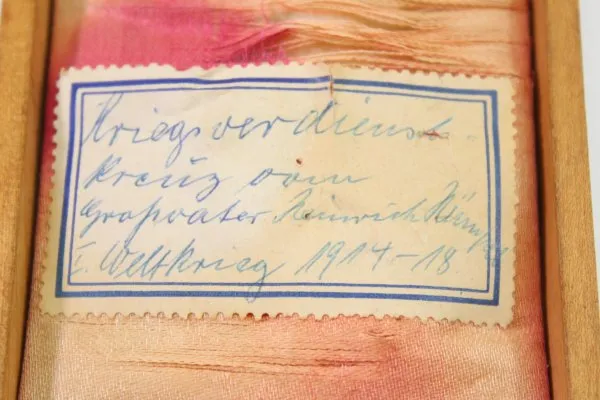 Kriegsverdienst-
kreuz vom
Großvater Heinrich
I. Weltkrieg 1914-18